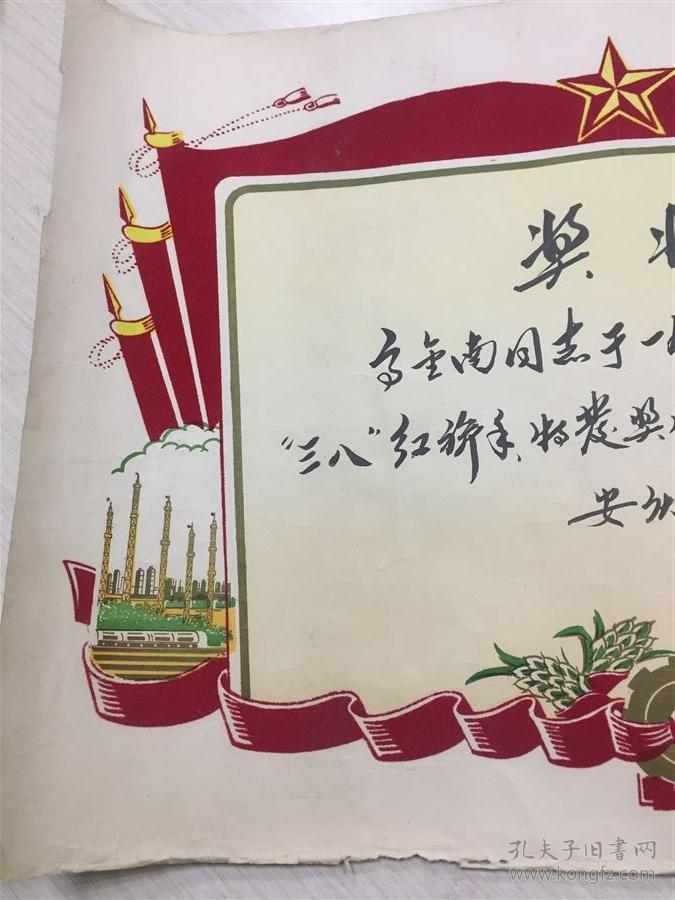 奖
同志于一
“三八”红旗手，特发奖
安
孔夫子旧书网
www.kongfz.com